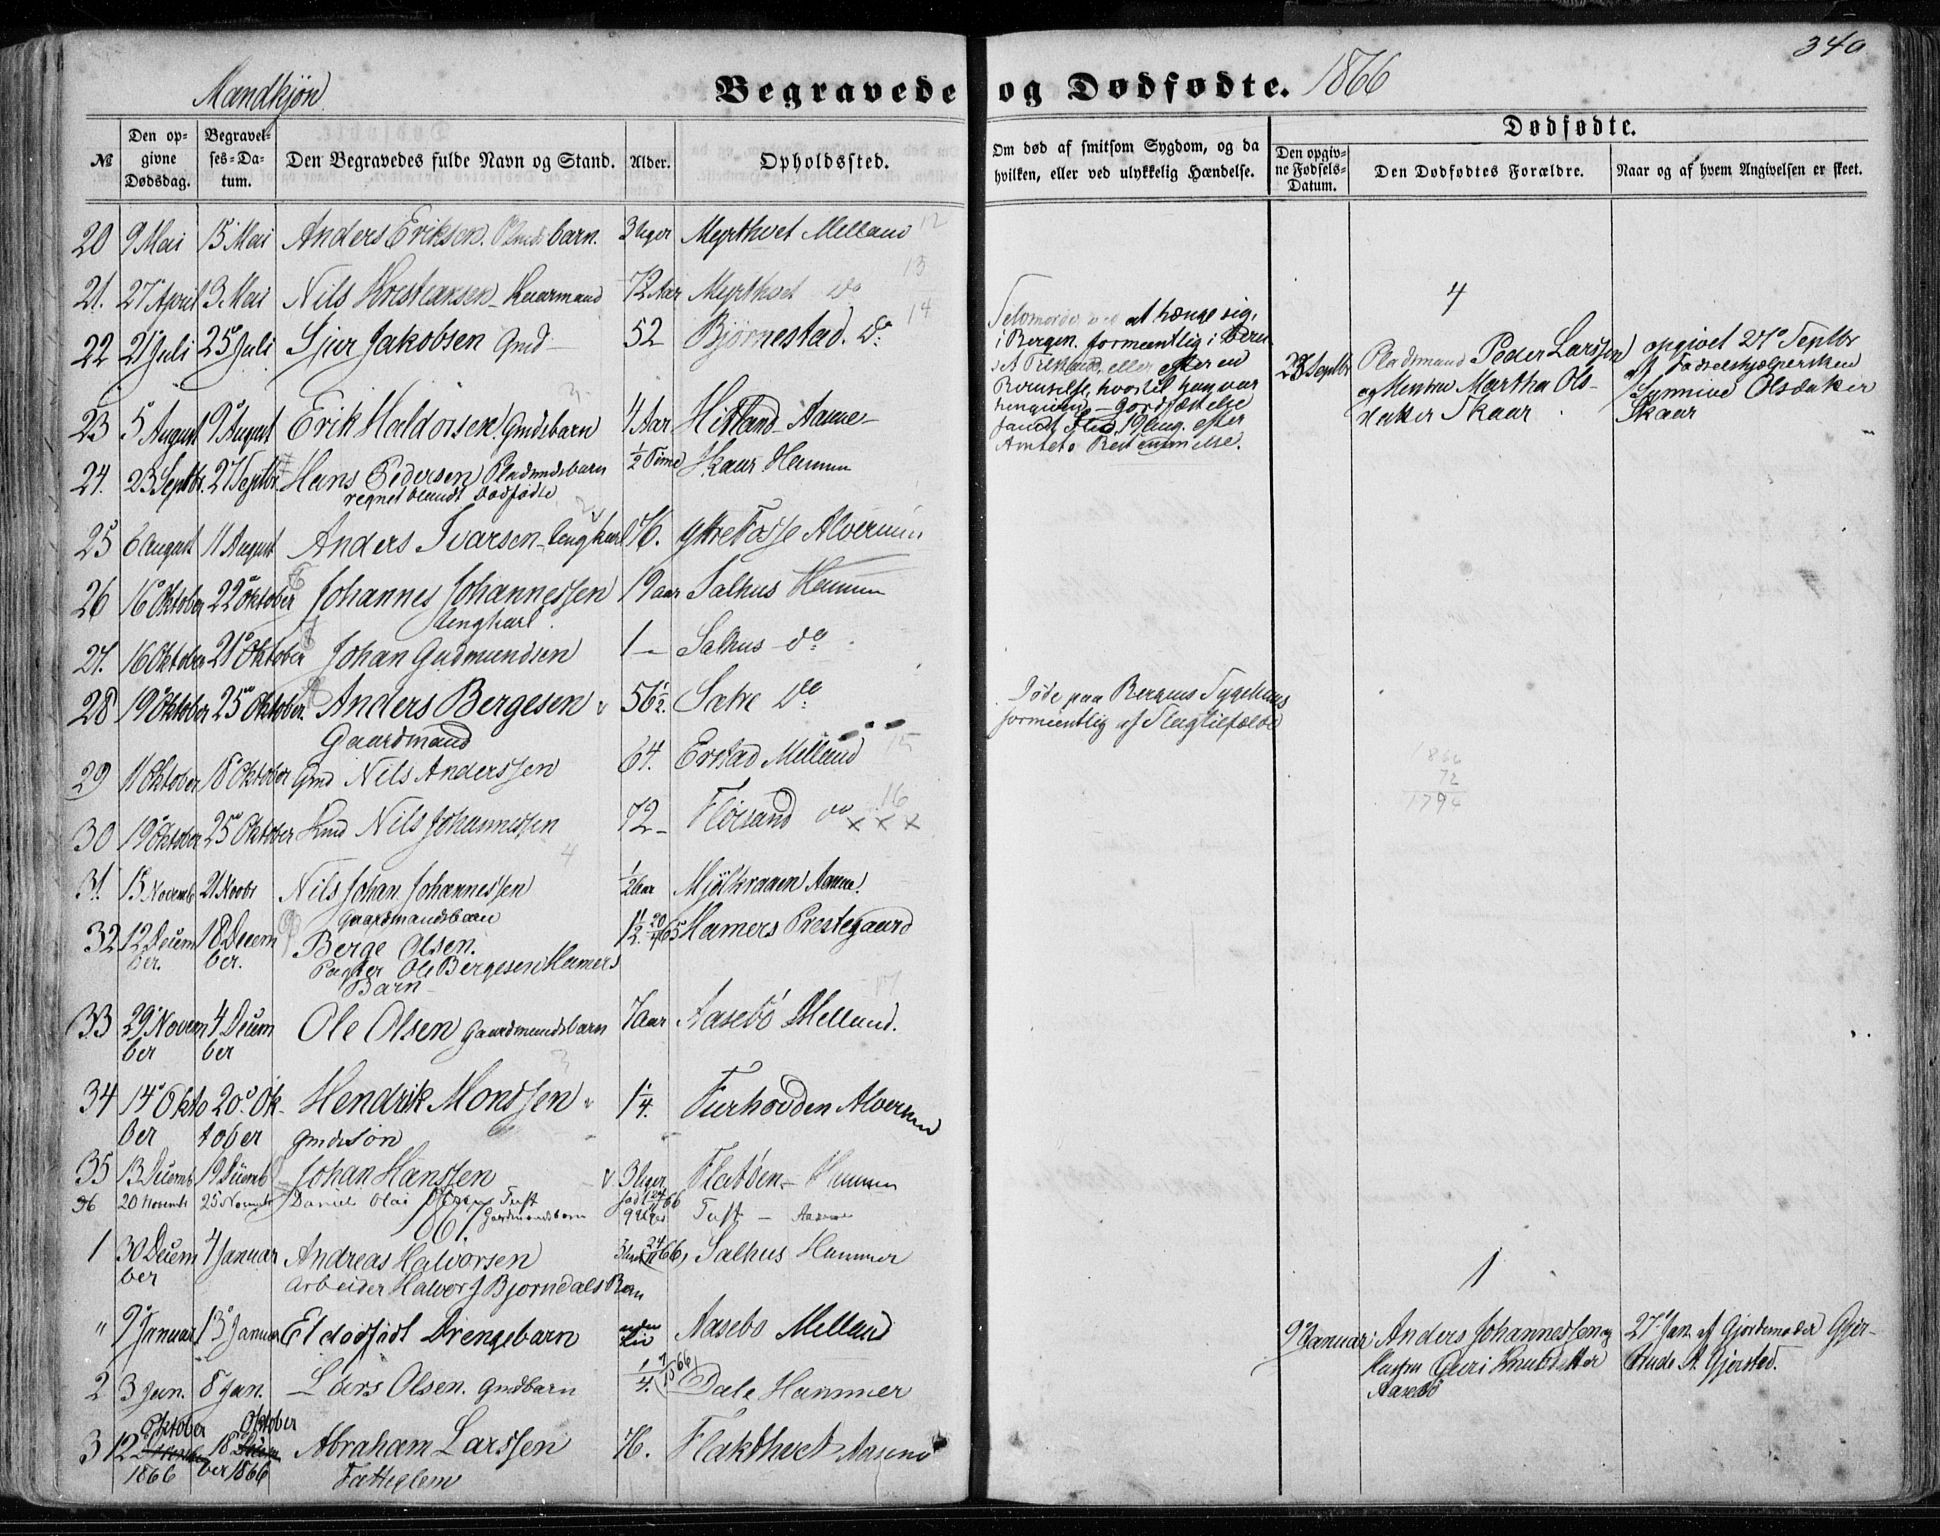 340
Mandkjøn
Begravede og Dødfødte. 1866
Dødfødte.
№
Den opgivne Dødsdag.
Begravelses-Datum.
Den Begravedes fulde Navn og Stand.
Alder.
Opholdssted.
Om død af smitsom Sygdom, og da hvilken, eller ved ulykkelig Hændelse.
Den opgivne Fødsels-Datum.
Den Dødfødtes Forældre.
Naar og af hvem Angivelsen er skeet.
20 9 Mai 15 Mai Anders Eriksen barn. 3 Uger Myrthvet Melland 12
21. 27 April 3 Mai Nils Kristiansen Kaarmand 72 Aar Myrthvet do 13
22 21 Juli 25 Juli Sjur Jakobsen Gmd 52 Bjørnestad. do 14
at hænge sig,
i Bergen, formeentlig i
eller efter en
hvortil han var
fandt Sted 19 Aug. efter
Amtets Bestemmelse.
4
23 Septbr Pladsmand Peder Larssen
og Martha Ols-
datter Skaar
opgivet 27 Septbr
af Fødselshjælpersken
Olsdatter
Skaar
23 5 August 9 August Erik Haldorsen. Gmdsbarn 4 Aar Hitland Aasene
24. 23 Septbr. 27 Septbr. Hans Pedersen Pladsmdsbarn ½ Time Skaar Hammer
regnet blandt Dødfødte
25 6 August 11 August Anders Ivarsen Ungkarl 76. Ytre Fosse Alversund
26 16 Oktober 22 Oktober Johannes Johannessen 19 aar Salhus Hammer
Ungkarl.
27. 16 Oktober 21 Oktober Johan Gudmundsen 1 Salhus do
28 19 Oktober 25 Oktober. Anders Bergesen 56½. Satre do
Gaardmand
Døde paa Bergens Sygehuus
formeentlig af Slagtilfælde
29 11 Oktober 18 Oktober Gmd Nils Anderssen 64. Erstad Melland 15
1866
72
1794
30 19 Oktober 25 Oktober Nils Johannessen 72 Fløisand do 16
x x x
31. 15 Novemb 21 Novbr Nils Johan Johannessen ½ aar Mjølkraaen Aasene
Gaardmandsbarn
32 12 Decem 18 Decem
ber. ber. Berge Olsen. 1½ Hamers Prestegaard
Pagter Ole Bergesen Hamers
Barn
33 29 Novem 4 Decem Ole Olsen Gaardmandsbarn 7 aar Aasebø Melland.
ber ber
34 14 Okto 20 Ok- Hendrik Monssen 1¼. Furhovden Alversund
ber tober Gmdsøn
35 13 Decemb 19 Decemb Johan Hanssen 3 Uger Flatøen Hammer
36 20 Novembr 25 Novembr Daniel Olai Olsen Tuft 9 Uger Tuft Aasene
Gaardmandsbarn
1867.
1 30 Decem 4 Januar Andreas Halvorsen 24/11 66, Salhus Hammer
ber Arbeider Halvor J Bjorndals Barn
1
" 9 Januar 13 Januar Et dødfødt Drengebarn uden Liv Aasebo Melland
9 Januar Anders Johannessen og
Guri Knudsdatter
Aasebø
27 Jan. af Gjordemoder Gjer-
trude A. Gjersted.
2 3 Jan. 8 Jan. Lars Olsen. Gmdbarn ¼. Dale Hammer
3 12 Oktober 1866 18 Oktober 1866 Abraham Larssen 76. Flaktheet Aasene
Fattiglem